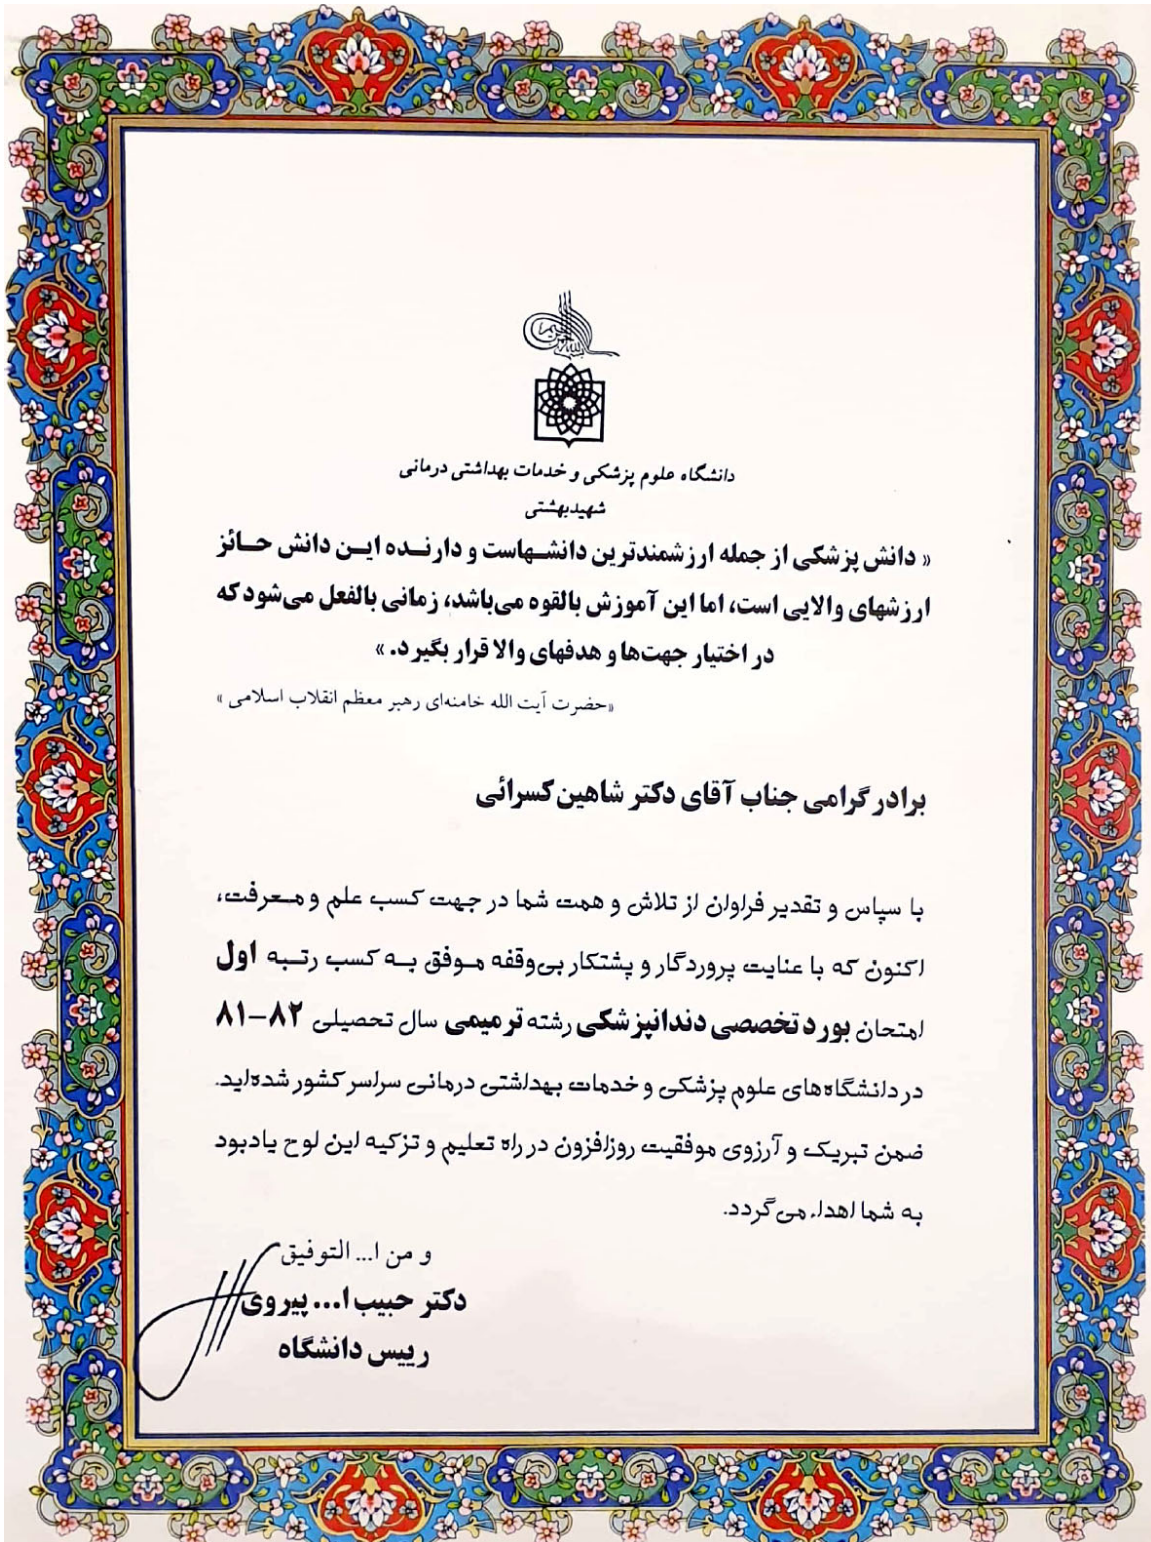 دانشگاه علوم پزشکی و خدمات بهداشتی درمانی
شهیدبهشتی
« دانش پزشکی از جمله ارزشمندترین دانشهاست و دارنده این دانش حائز
ارزشهای والایی است، اما این آموزش بالقوه می‌باشد، زمانی بالفعل می‌شود که
در اختیار جهت‌ها و هدفهای والا قرار بگیرد. »
«حضرت آیت الله خامنه‌ای رهبر معظم انقلاب اسلامی »
برادر گرامی جناب آقای دکتر شاهین کسرائی
با سپاس و تقدیر فراوان از تلاش و همت شما در جهت کسب علم و معرفت،
اکنون که با عنایت پروردگار و پشتکار بی‌وقفه موفق به کسب رتبه اول
امتحان بورد تخصصی دندانپزشکی رشته ترمیمی سال تحصیلی ۸۲–۸۱
در دانشگاه‌های علوم پزشکی و خدمات بهداشتی درمانی سراسر کشور شده‌اید.
ضمن تبریک و آرزوی موفقیت روزافزون در راه تعلیم و تزکیه این لوح یادبود
به شما اهداء می‌گردد.
و من ا... التوفیق
دکتر حبیب ا... پیروی
رییس دانشگاه